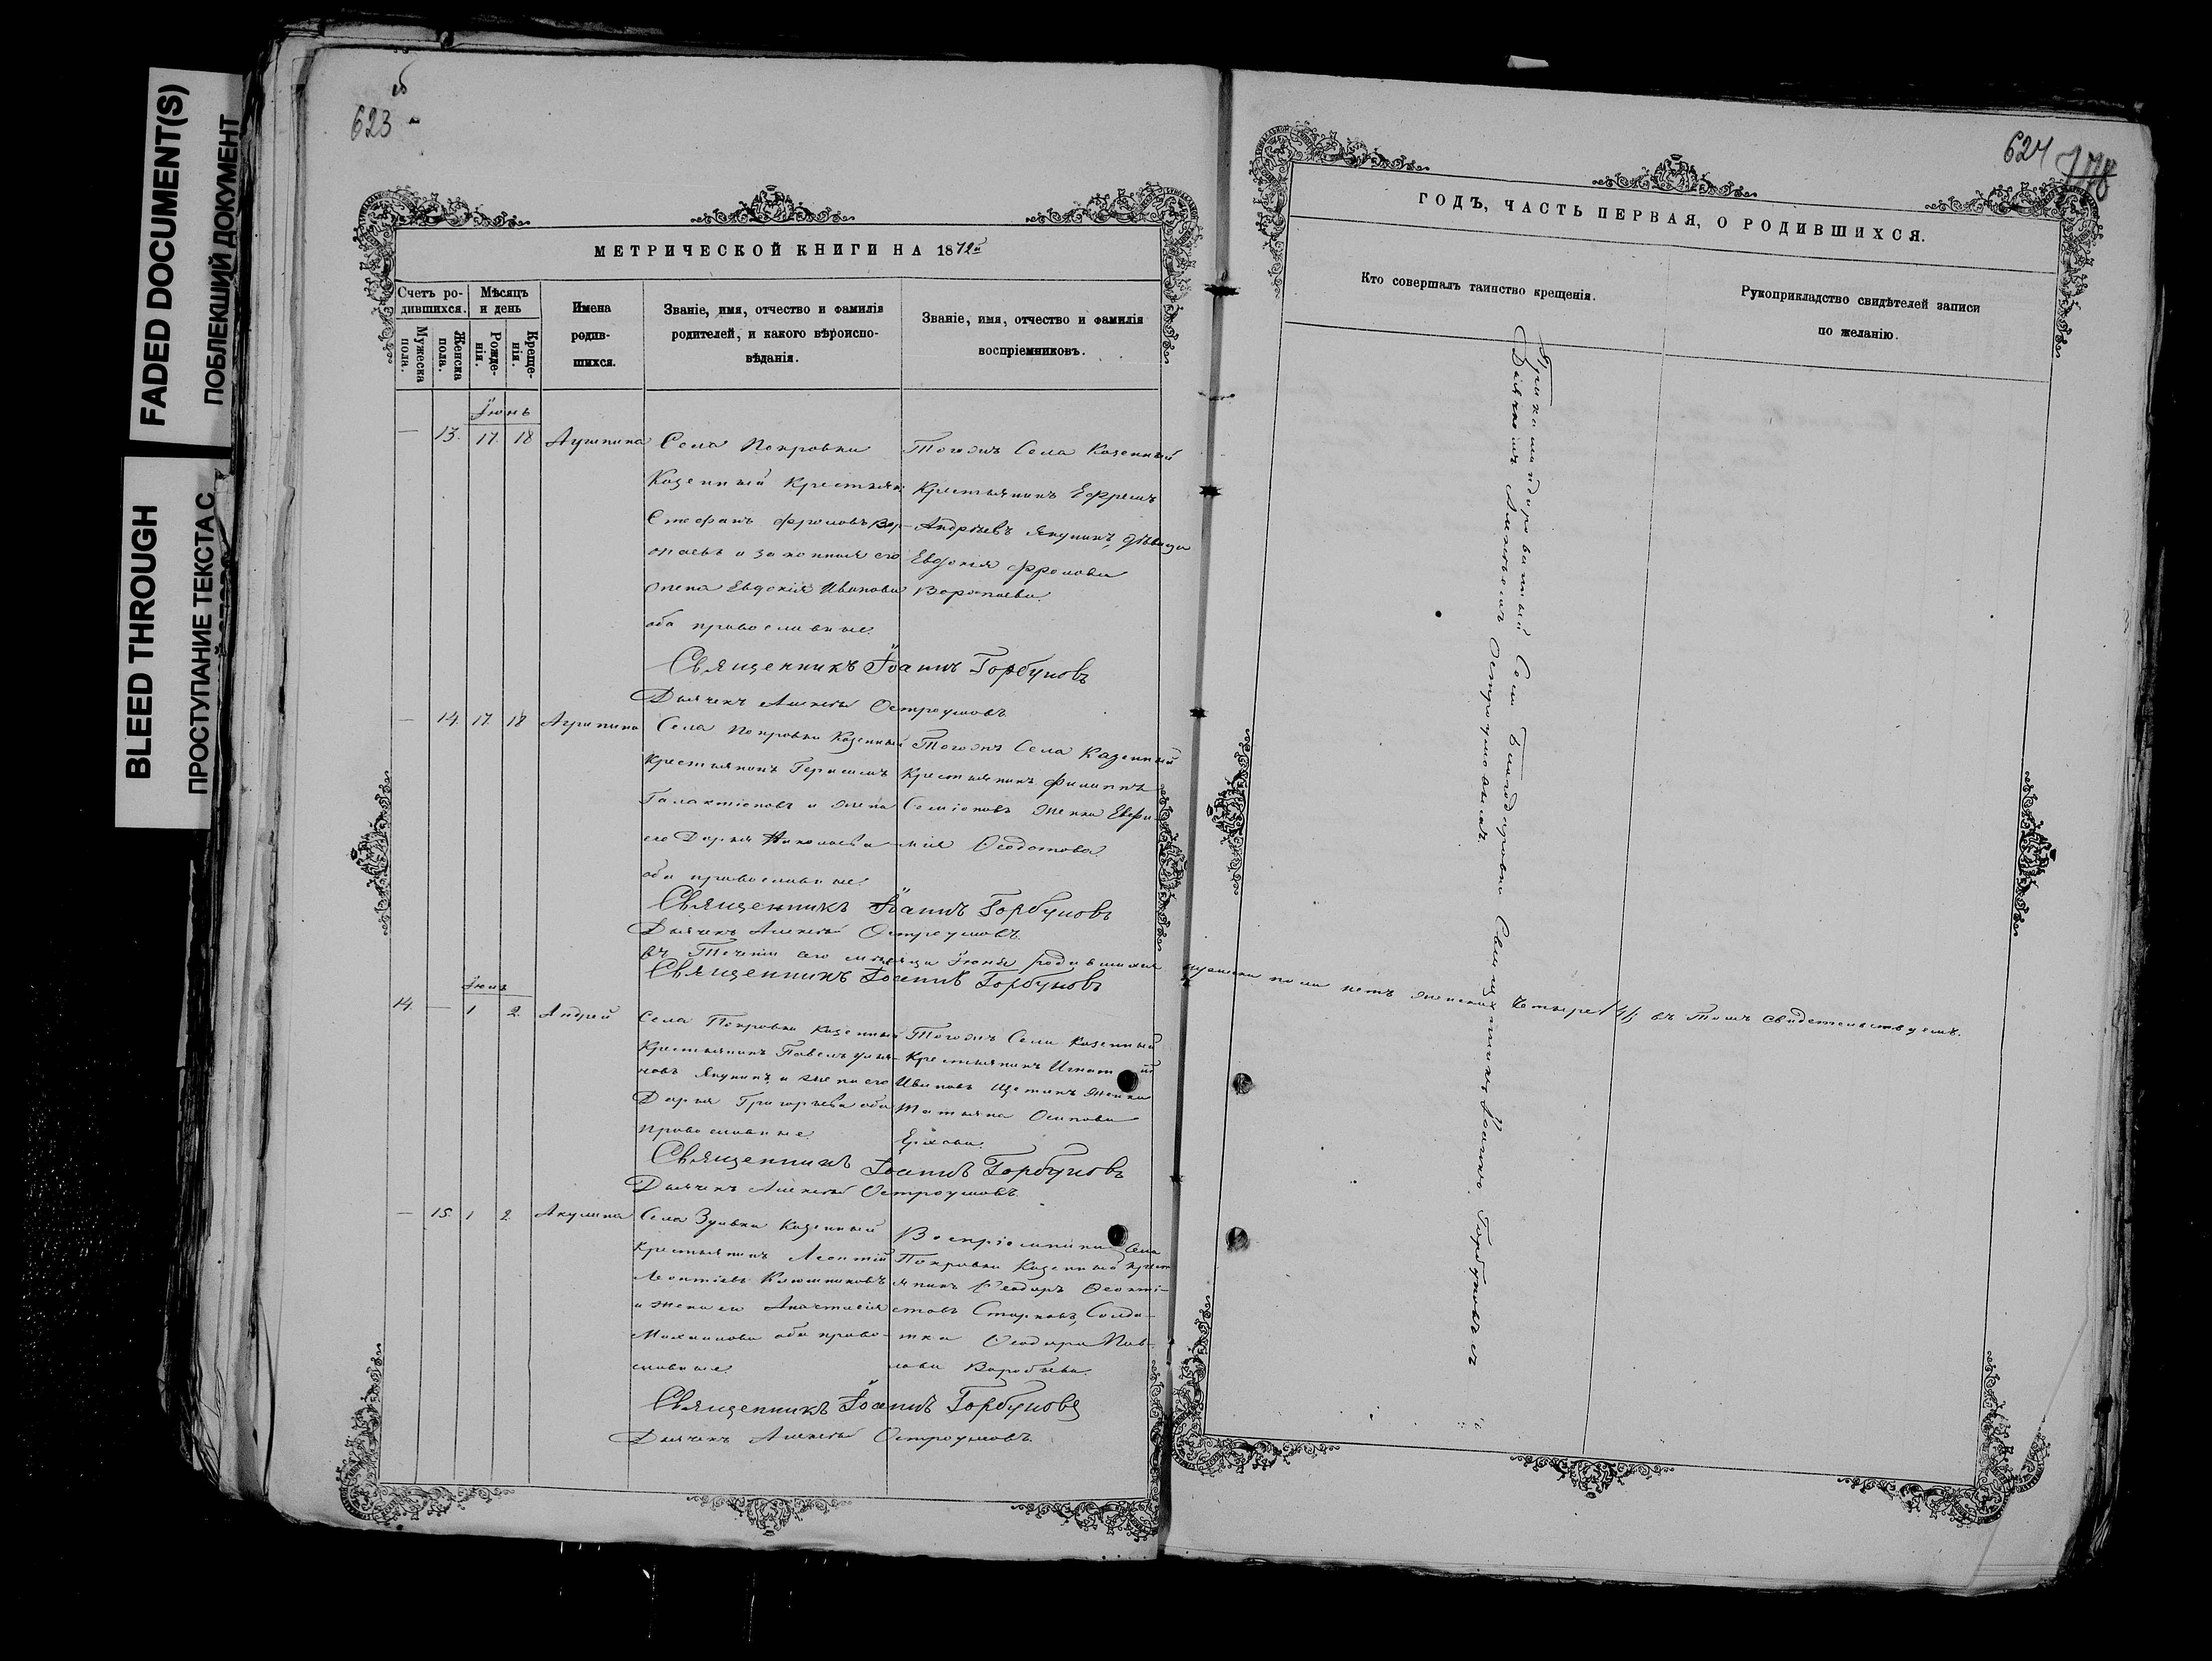 FADED DOCUMENT(S)
ПОБЛЕКШИЙ ДОКУМЕНТ
BLEED THROUGH
ПРОСТУПАНИЕ ТЕКСТА С
623
МЕТРИЧЕСКОЙ КНИГИ НА 1872й
Счетъ ро-
дившихся.
Мужеска
пола.
Женска
пола.
Мѣсяцъ
и день
Рожде-
нія.
Креще-
нія.
Имена
родив-
шихся.
Званіе, имя, отчество и фамилія
родителей, и какого вѣроиспо-
вѣданія.
Званіе, имя, отчество и фамилія
воспріемниковъ.
Іюнь
— 13. 17. 18 Агрипина
Села Покровки
Казенный Крестьян:
Стефанъ Фроловъ Вор-
опаевъ и законная его
жена Евдокія Иванова
оба православные.
Тогожъ Села Казенный
Крестьянинъ Ефремъ
Андреевъ Якунинъ, дѣвица
Евдокія Фролова
Воропаева.
Священникъ Іоаннъ Горбуновъ
Дьячекъ Алексѣй Остроумовъ
— 14. 17. 18 Агрипина
Села Покровки Казенный
Крестьянинъ Герасимъ
Галактіоновъ и жена
его Дарья Николаева
оба православные.
Тогожъ Села Казенный
Крестьянинъ Филиппъ
Семіоновъ жена Евфи-
мія Ѳедотова.
Священникъ Іоаннъ Горбуновъ
Дьячекъ Алексѣй Остроумовъ.
въ Теченіи сего мѣсяца Іюня родившихся мужеска пола нетъ женска Четыре /4/, въ Томъ свидетельствуемъ.
Священникъ Іоаннъ Горбуновъ
Іюль
14. — 1 2. Андрей
Села Покровки Казенный
Крестьянинъ Павелъ Улья-
новъ Якунинъ и жена его
Дарья Григорьева оба
православные.
Тогожъ Села Казенный
Крестьянинъ Игнатій
Ивановъ Щетинъ жена
Татьяна Осипова
Священникъ Іоаннъ Горбуновъ
Дьячекъ Алексѣй Остроумовъ.
— 15. 1 2. Акулина
Села Зуевки Казенный
Крестьянинъ Леонтій
Леонтіевъ Ключниковъ
и жена его Анастасія
Михаилова оба право-
славные.
Воспріемники Села
Покровки Казенный Крест
янинъ Ѳеодоръ Ѳеокти-
стовъ Старковъ, Солда-
тка Ѳеодора Пав-
лова Воробьева.
Священникъ Іоаннъ Горбуновъ
Дьячекъ Алексѣй Остроумовъ.
624
778
ГОДЪ, ЧАСТЬ ПЕРВАЯ, О РОДИВШИХСЯ.
Кто совершалъ таинство крещенія.
Рукоприкладство свидѣтелей записи
по желанію.
Села Священникъ Іоаннъ Горбуновъ съ
Дьячкомъ Алексѣемъ Остроумовымъ.